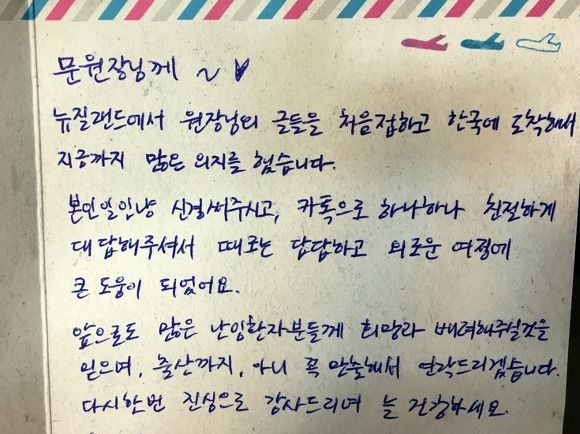 문원장님께 ~ ♥
뉴질랜드에서 원장님의 글들을 처음접하고 한국에 도착해서
지금까지 많은 의지를 했습니다.
본인일인냥 신경써주시고, 카톡으로 하나하나 친절하게
대답해주셔서 때로는 답답하고 외로운 여정에
큰 도움이 되었어요.
앞으로도 많은 난임환자분들께 희망과 배려해주실것을
믿으며, 출산까지, 아니 꼭 만출해서 연락드리겠습니다.
다시한번 진심으로 감사드리며 늘 건강하세요.